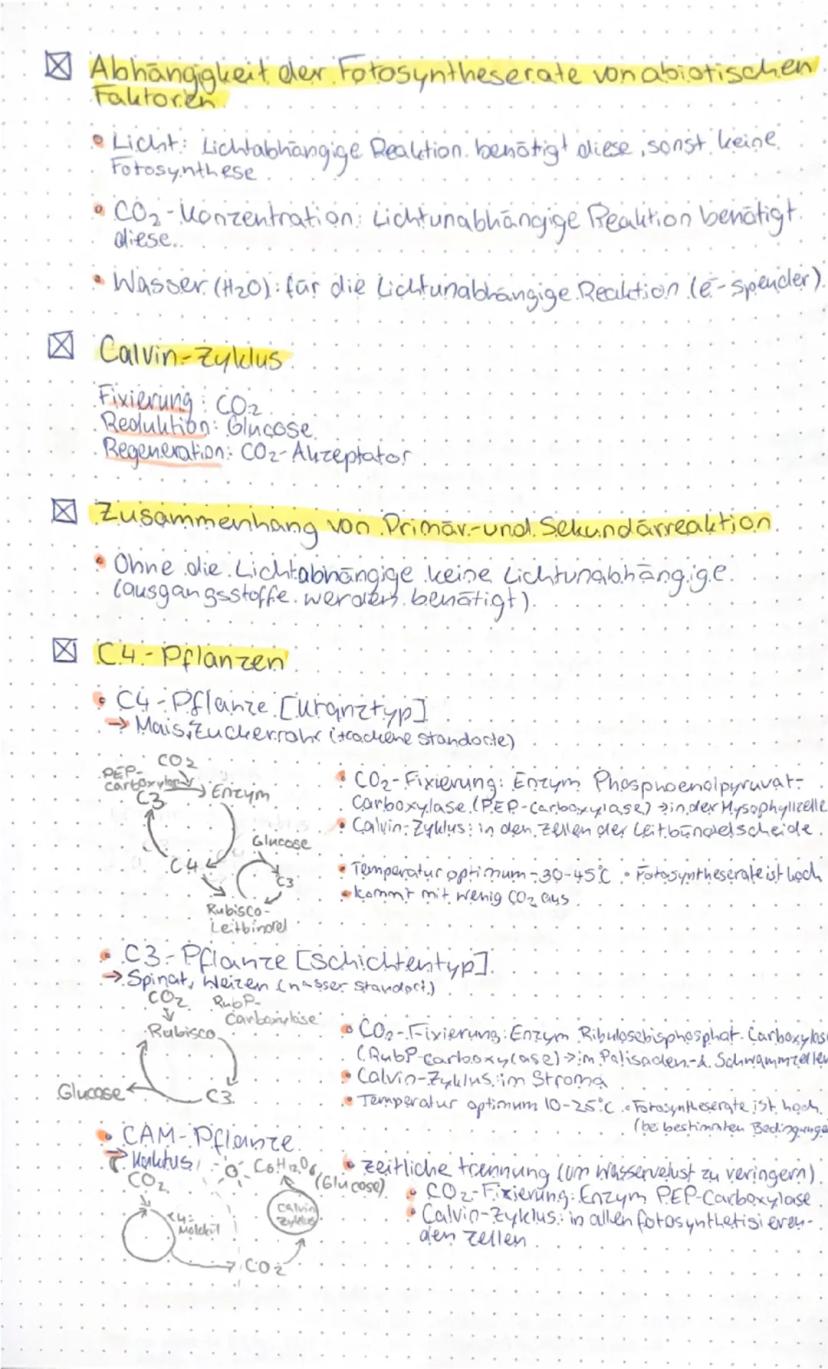 Abhängigkeit der Fotosyntheserate von abiotischen
Faktoren
• Licht: Lichtabhängige Reaktion benötigt diese, sonst keine
Fotosynthese
• CO₂-Konzentration: Lichtunabhängige Reaktion benötigt
diese.
• Wasser (H₂O): für die Lichtunabhängige Reaktion (e⁻-Spender)
Calvin-Zyklus
Fixierung: CO₂
Reduktion: Glucose
Regeneration: CO₂-Akzeptator
Zusammenhang von Primär- und Sekundärreaktion
• Ohne die Lichtabhängige keine Lichtunabhängige
(ausgangsstoffe werden benötigt)
C4-Pflanzen
• C4-Pflanze [Kranztyp]
→ Mais, Zuckerrohr (trockene Standorte)
CO₂
PEP-
carboxylase
C3
Enzym
C4
Glucose
C3
Rubisco-
Leitbündel
• CO₂-Fixierung: Enzym Phosphoenolpyruvat-
Carboxylase (PEP-Carboxylase) → in der Mysophyllzelle
• Calvin-Zyklus: in den Zellen der Leitbündelscheide
• Temperatur optimum - 30-45°C • Fotosyntheserate ist hoch
• kommt mit wenig CO₂ aus
• C3-Pflanze [Schichtentyp]
→ Spinat, Weizen (nasser Standort)
CO₂
RubP-
Carboxylase
Rubisco
Glucose
C3
• CO₂-Fixierung: Enzym Ribulosebisphosphat-Carboxylas
(RubP-Carboxylase) → im Palisaden- & Schwammzellen
• Calvin-Zyklus: im Stroma
• Temperatur optimum 10-25°C • Fotosyntheserate ist hoch
(bei bestimmten Bedingunge
• CAM-Pflanze
→ Kaktus,
CO₂
C4-
Molekül
CO₂
Calvin
Zyklus
C₆H₁₂O₆
(Glucose)
• zeitliche trennung (um Wasserverlust zu veringern)
• CO₂-Fixierung: Enzym PEP-Carboxylase
• Calvin-Zyklus: in allen fotosynthetisieren-
den Zellen